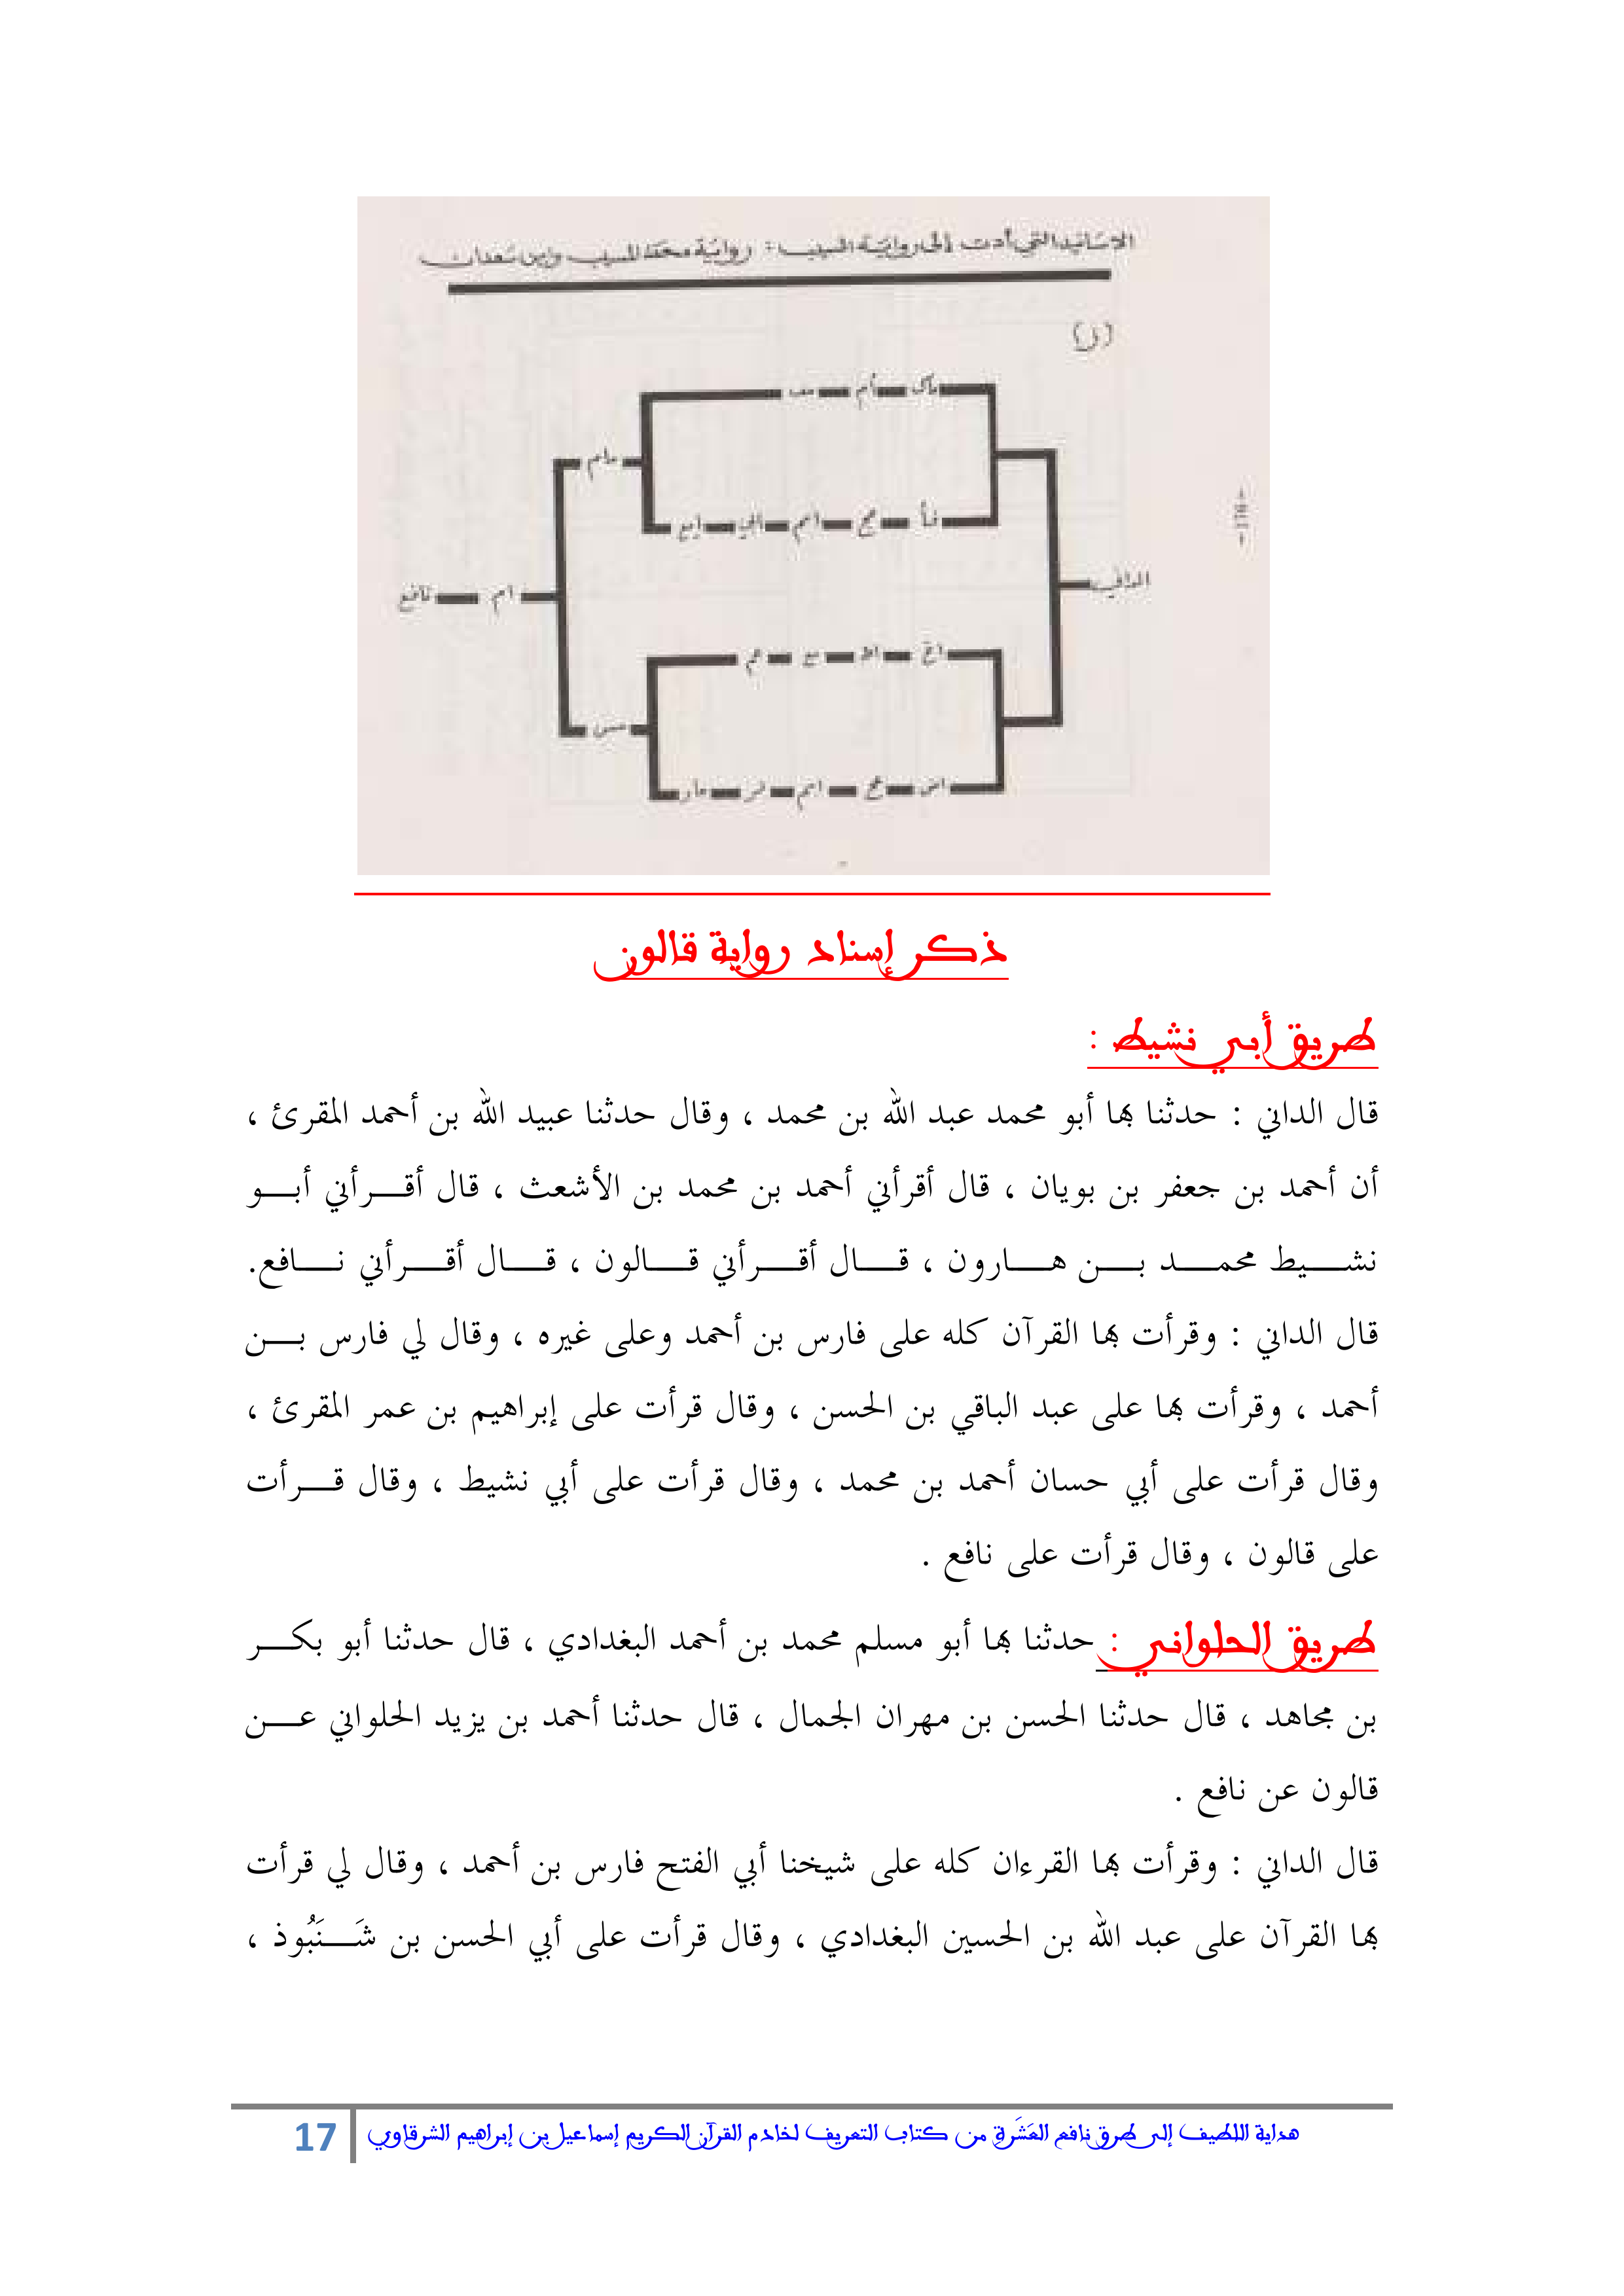 الاسانيد التي أدت إلى رواية المسيب : رواية محمد المسيب وابن سعدان
أم
مام
فأ
اسم
الداني
ام
نافع
ذكر إسناد رواية قالون
طريق أبي نشيط :
قال الداني : حدثنا بها أبو محمد عبد الله بن محمد ، وقال حدثنا عبيد الله بن أحمد المقرئ ،
أن أحمد بن جعفر بن بويان ، قال أقرأني أحمد بن محمد بن الأشعث ، قال أقـــرأني أبـــو
نشـــيط محمـــد بـــن هـــارون ، قـــال أقـــرأني قـــالون ، قـــال أقـــرأني نـــافع.
قال الداني : وقرأت بها القرآن كله على فارس بن أحمد وعلى غيره ، وقال لي فارس بـــن
أحمد ، وقرأت بها على عبد الباقي بن الحسن ، وقال قرأت على إبراهيم بن عمر المقرئ ،
وقال قرأت على أبي حسان أحمد بن محمد ، وقال قرأت على أبي نشيط ، وقال قـــرأت
على قالون ، وقال قرأت على نافع .
طريق الحلواني : حدثنا بها أبو مسلم محمد بن أحمد البغدادي ، قال حدثنا أبو بكـــر
بن مجاهد ، قال حدثنا الحسن بن مهران الجمال ، قال حدثنا أحمد بن يزيد الحلواني عـــن
قالون عن نافع .
قال الداني : وقرأت بها القرءان كله على شيخنا أبي الفتح فارس بن أحمد ، وقال لي قرأت
بها القرآن على عبد الله بن الحسين البغدادي ، وقال قرأت على أبي الحسن بن شَـــنَبُوذ ،
هداية اللطيف إلى طرق نافع العَشَرة من كتاب التعريف لخادم القرآن الكريم إسماعيل بن إبراهيم الشرقاوي
17